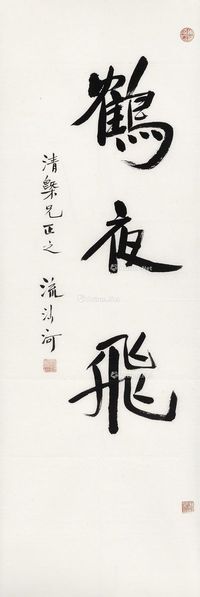 鶴夜飛
清槃兄正之
流沙河